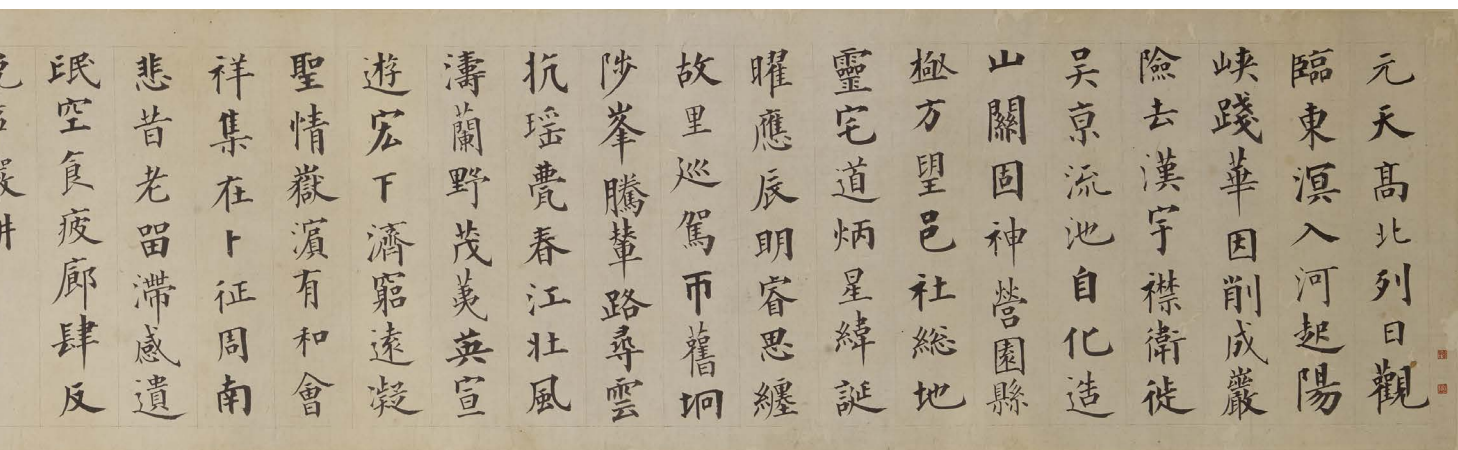 元天髙北列日觀
臨東溟入河起陽
峽踐華因削成巖
險去漢宇襟衛徙
吳亰流池自化造
山關固神營園縣
極方望邑社総地
靈宅道炳星緯誕
曜應辰明睿思纏
故里巡駕帀舊坰
陟峯騰輦路尋雲
抗瑶甍春江壯風
濤蘭野茂荑英宣
遊宏下濟窮遠凝
聖情嶽濵有和會
祥集在卜征周南
悲昔老留滯感遺
氓空食疲廊肆反